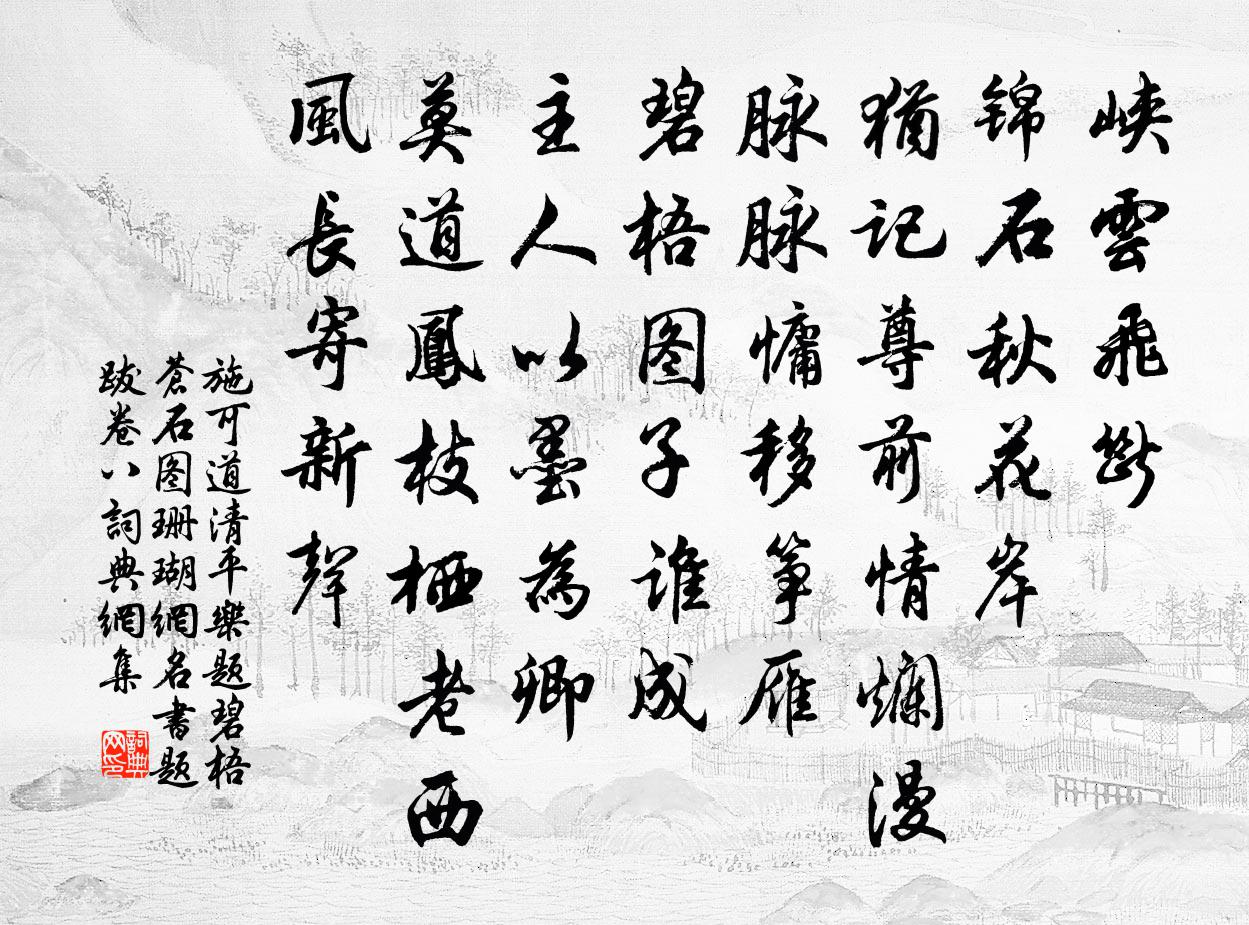 峽雲飛斷
锦石秋花岸
猶记尊前情爛漫
脉脉慵移筝雁
碧梧图子谁成
主人以墨為卿
莫道鳳枝栖老西
風長寄新聲
施可道清平樂题碧梧
蒼石图珊瑚網名書题
跋卷八詞典網集
詞典網印